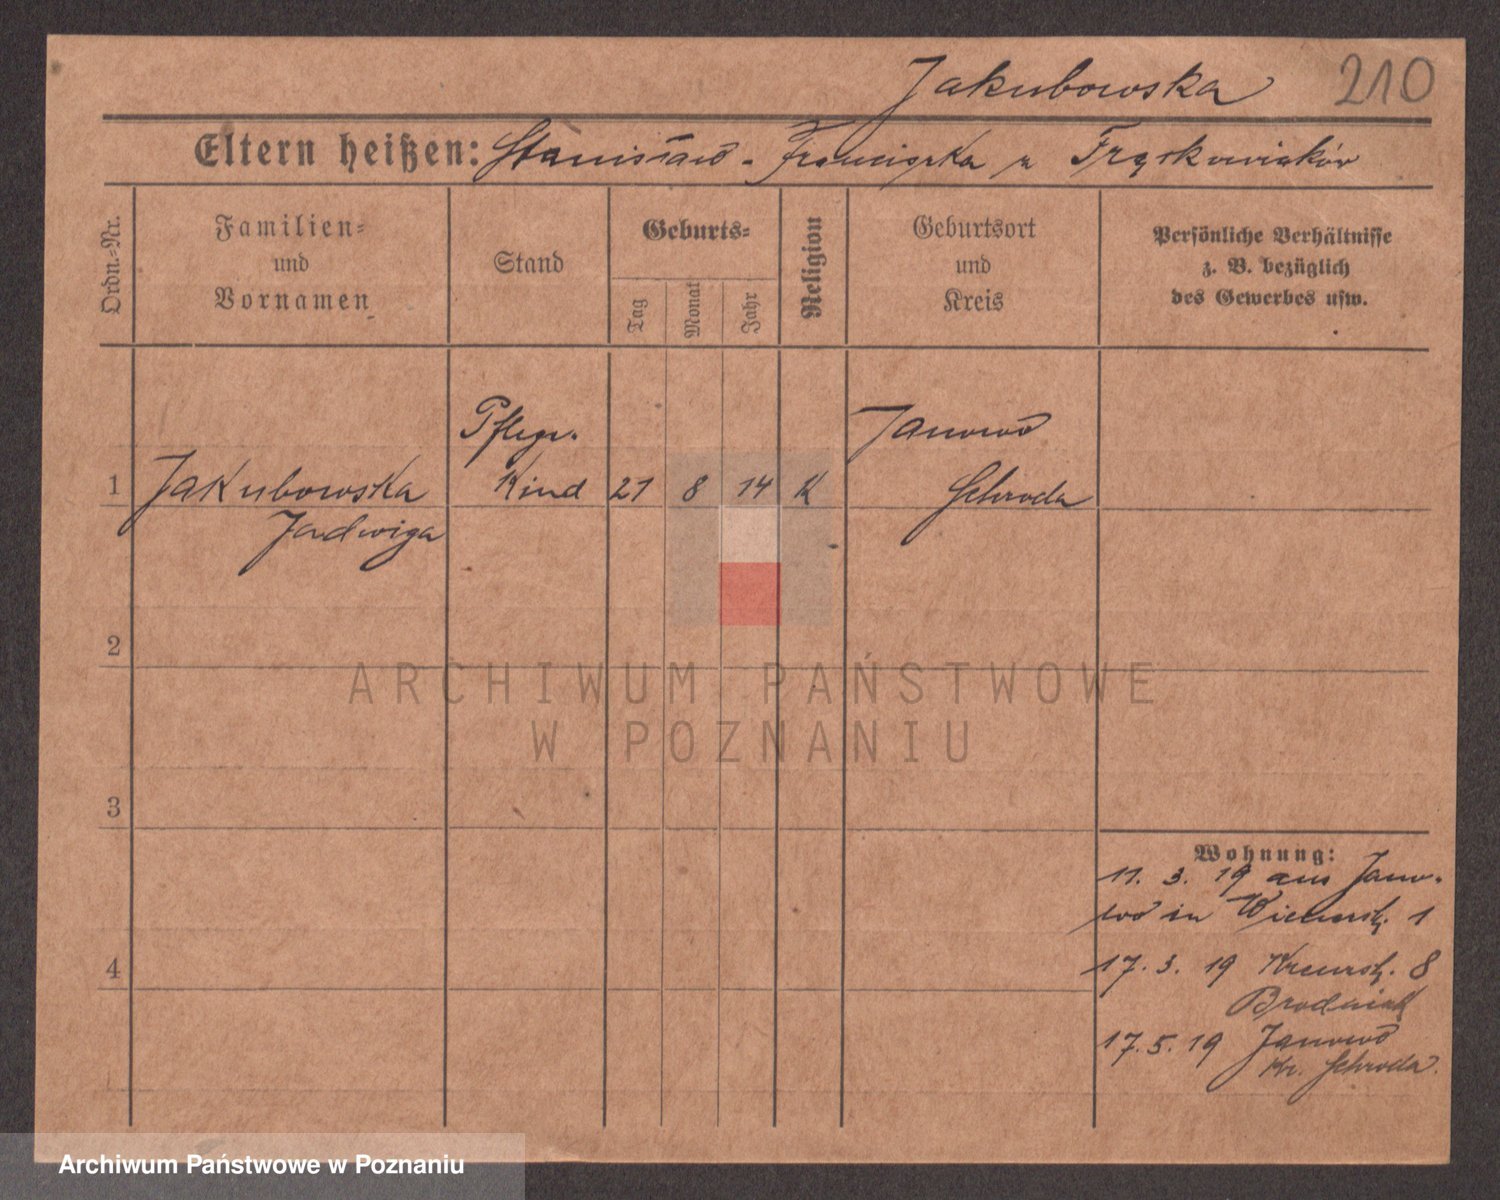 Jakubowska 210
Eltern heißen: Stanisław - Franciszka z Frąskowiaków
Ordn.-Nr.
Familien-
und
Vornamen
Stand
Geburts-
Tag
Monat
Jahr
Religion
Geburtsort
und
Kreis
Persönliche Verhältnisse
z. B. bezüglich
des Gewerbes usw.
Pflege-
Janowo
1 Jakubowska Kind 21 8 14 K Schroda
Jadwiga
2
ARCHIWUM PAŃSTWOWE
W POZNANIU
3
Wohnung:
11. 3. 19 aus Jano-
wo in 1
4
17. 3. 19 8
Brodniak
17. 5. 19 Janowo
Kr. Schroda.
Archiwum Państwowe w Poznaniu